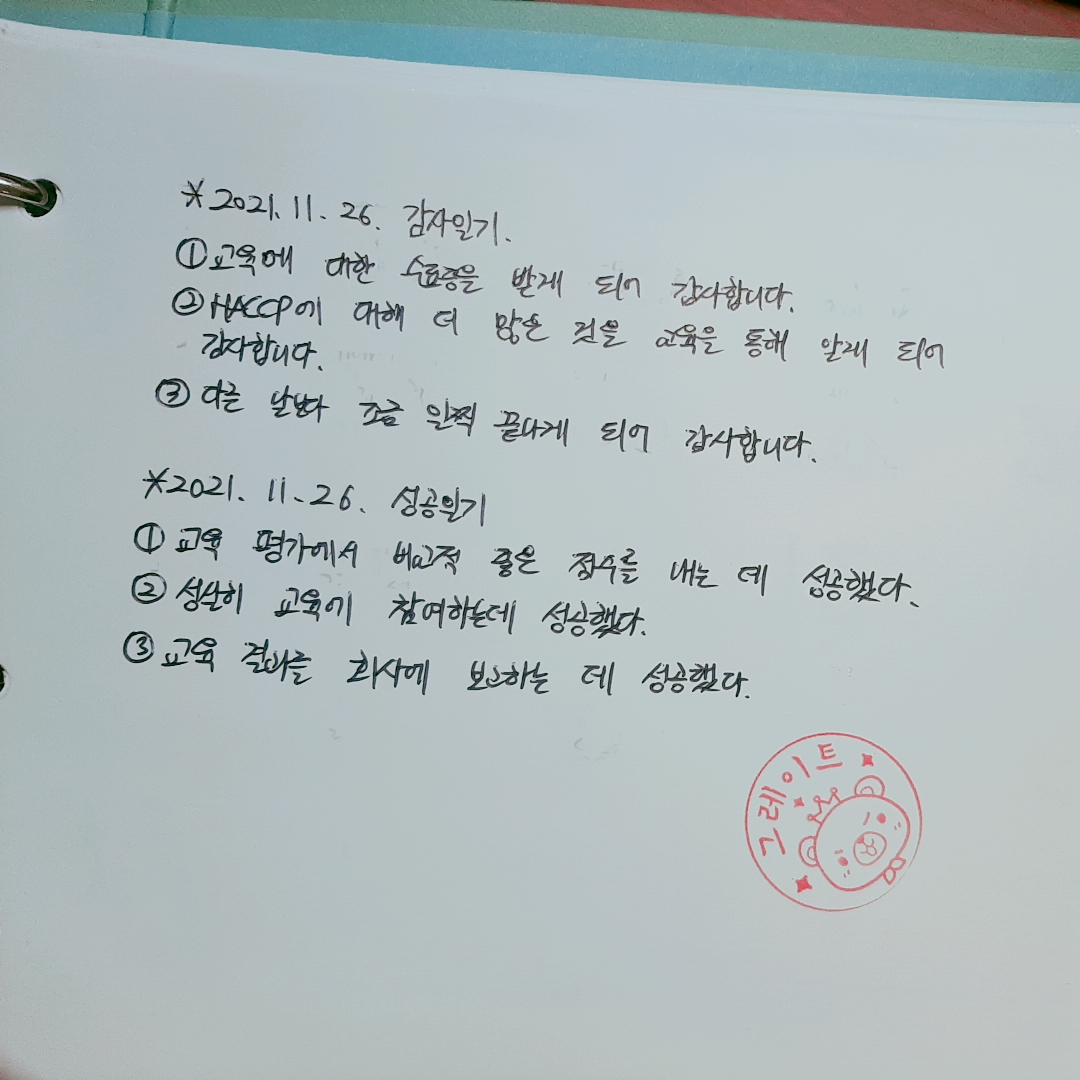 *2021. 11. 26. 감사일기.
①교육에 대한 수료증을 받게 되어 감사합니다.
②HACCP에 대해 더 많은 것을 교육을 통해 알게 되어
감사합니다.
③ 다른 날보다 조금 일찍 끝나게 되어 감사합니다.
*2021. 11. 26. 성공일기
① 교육 평가에서 비교적 좋은 점수를 내는 데 성공했다.
② 성실히 교육에 참여하는데 성공했다.
③교육 결과를 회사에 보고하는 데 성공했다.
그레이트